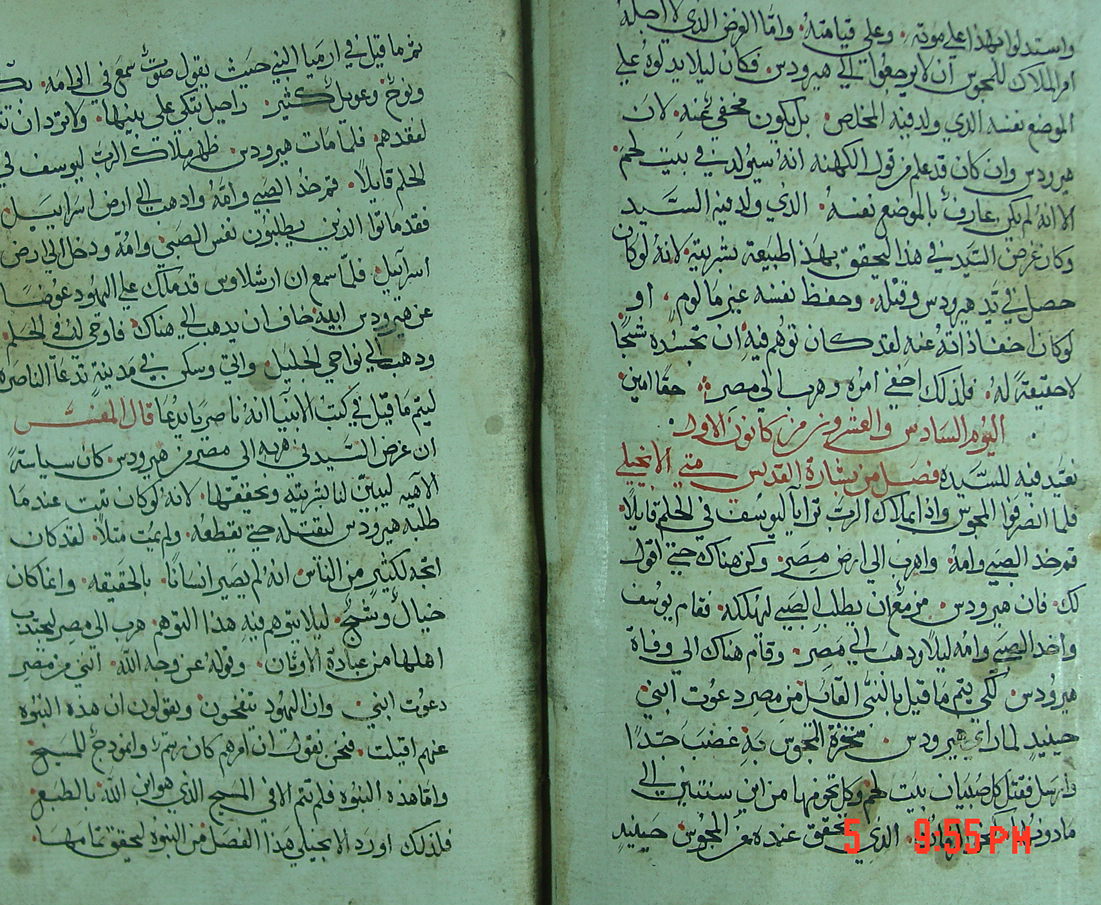 واستدلوا بهذا علي موته. وعلي قيامته. واما الغرض الذي لاجله
امر الملاك للمجوس ان لا يرجعوا الي هيرودس. فكان ليلا يدلوه علي
الموضع نفسه الذي ولد فيه المخلص. بل يكون مخفي عنه. لان
هيرودس وان كان قد علم من قول الكهنه انه سيولد في بيت لحم
الا انه لم يكن عارف بالموضع نفسه. الذي ولد فيه السيد
وكان غرض السيد في هذا ليحقق بهذا طبيعة بشريته. لانه لو كان
حصل في يد هيرودس وقتله. وحفظ نفسه غير مالوم. او
لو كان اختفا ذاته عنه لقد كان توهم فيه ان تجسده شبحا
لا حقيقة له. فلذلك اخفي امره وهرب الي مصر. حقا امين.
اليوم السادس والعشرون من كانون الاول.
نعيد فيه للسيده فصل من بشارة القديس متي الانجيلي
فلما انصرفوا المجوس واذا بملاك الرب ترايا ليوسف في الحلم قايلا.
قم خذ الصبي وامه واهرب الي ارض مصر. وكن هناك حتي اقول
لك. فان هيرودس. مزمع ان يطلب الصبي ليهلكه. فقام يوسف
واخذ الصبي وامه ليلا وذهب الي مصر. وقام هناك الي وفاة
هيرودس. لكي يتم ما قيل بالنبي القايل من مصر دعوت ابني
حينيد لما راي هيرودس. سخرة المجوس به غضب جدا
وارسل فقتل كل صبيان بيت لحم وكل تخومها من ابن سنتين الي
ما دون الذي تحقق عنده من المجوس. حينيد
5 9:55 PM
تم ما قيل في ارميا النبي حيث يقول صوت سمع في الرامه.
ونوح وعويل كثير. راحيل تبكي علي بنيها. ولا تريد ان
لفقدهم. فلما مات هيرودس. ظهر ملاك الرب ليوسف في
الحلم قايلا. قم خذ الصبي وامه واذهب الي ارض اسراييل.
فقد ماتوا الذين يطلبون نفس الصبي. وامه ودخل الي ارض
اسراييل. فلما سمع ان ارشلاوس قد ملك علي اليهود عوضا
عن هيرودس ابيه خاف ان يدهب الي هناك. فاوحي له في الحلم
ودهب الي نواحي الجليل. واتي وسكن في مدينة تدعا الناصره
ليتم ما قيل في كتب الانبيا انه ناصريا يدعا قال المفسر
ان غرض السيد في هربه الي مصر من هيرودس كان سياسة
الاهيه ليبين لنا بشريته وتحقيقها. لانه لو كان ثبت عندما
طلبه هيرودس ليقتله حتي يقطعه. ولم يمت متلا. لقد كان
اتجه لكثير من الناس انه لم يصير انسانا. بالحقيقه وانما كان
خيال وشبح. ليلا يتوهم فيه هذا التوهم هرب الي مصر ليجتدب
اهلها من عبادة الاوتان. وقوله عن وجه الله. انني من مصر
دعوت ابني. وان اليهود يتفحون ويقولون ان هذه النبوه
عنهم اقيلت. فنحن نقول ان امرهم كان رسم وانمودج للمسيح
واما هذه النبوه فلم تتم الا في المسيح الذي هو ابن الله بالطبع
فلذلك اورد الانجيلي هذا الفصل من النبوه ليحقق تمامها.